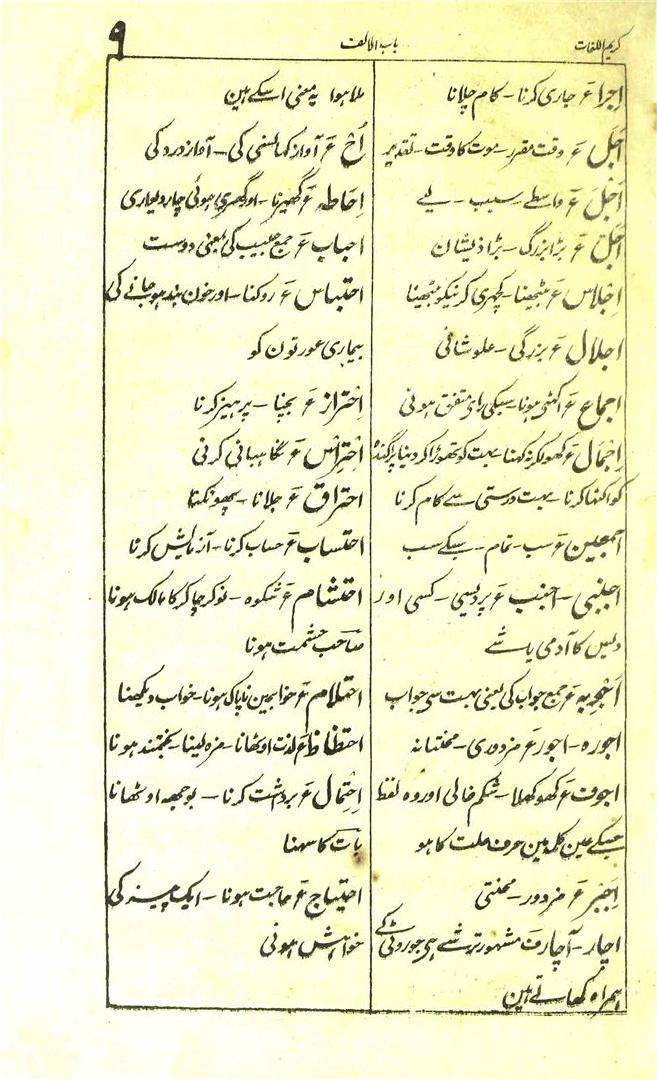 کریم اللغات
باب الالف
۹
اِجرا ع جاری کرنا۔ کام چلانا
اَجَل ع وقت مقرر۔ موت کا وقت۔ تقدیر
اَجَل ع واسطے۔ سبب۔ لیے
اَجَلّ ع بڑا بزرگ۔ بڑا ذیشان
اِجلاس ع بٹھینا۔ کچہری کرنیکو بٹھینا
اجلال ع بزرگی۔ علو شانی
اجماع ع اکٹھی ہونا۔ سبکی رای متفق ہونی
اِجمال ع کھولکر نہ کہنا بہت کو تھوڑا کر دینا پراگندہ
کو اکٹھا کرنا۔ بہت درستی سے کام کرنا
اجمعین ع سب۔ تمام۔ سبکے سب
اجنبی۔ اجنب ع پردیسی۔ کسی اور
دیس کا آدمی یا شے
اَجْوِبہ ع جمع جواب کی یعنی بہت سی جواب
اجورہ۔ اجور ع مزدوری۔ محنتانہ
اجوف ع کھوکھلا۔ شکم خالی اور وہ لفظ
جسکے عین کلمہ مین حرف علت کا ہو
اجیر ع مزدور۔ محنتی
اچار۔ آچار ف مشہور ترشے ہی جو روٹی کے
ہمراہ کھاتے ہین
ملا ہوا یہ معنی اسکے ہین
اُحْ ع آواز کھانسنی کی۔ آواز درد کی
اِحَاطہ ع گھیرنا۔ اور گھری ہوئی چار دیواری
احباب ع جمع حبیب کی بمعنی دوست
احتباس ع روکنا۔ اور خون بند ہو جانے کی
بیماری عورتون کو
اِحْتراز ع بچنا۔ پرہیز کرنا
اِحْتِرَاس ع نگاہبانی کرنی
احتراق ع جلانا۔ پھونکنا
احتساب ع حساب کرنا۔ آزمایش کرنا
احتشام ع شکوہ۔ نوکر چاکر کا مالک ہونا
صاحب حشمت ہونا
احتلام ع خوابمین ناپاک ہونا۔ خواب دیکھنا
احتظاظ ع لذت اوٹھانا۔ مزہ لینا۔ بختمند ہونا
اِحْتِمال ع برداشت کرنا۔ بوجھہ اوٹھانا
بات کا سہنا
احتیاج ع حاجت ہونا۔ ایک چیز کی
خواہش ہونی